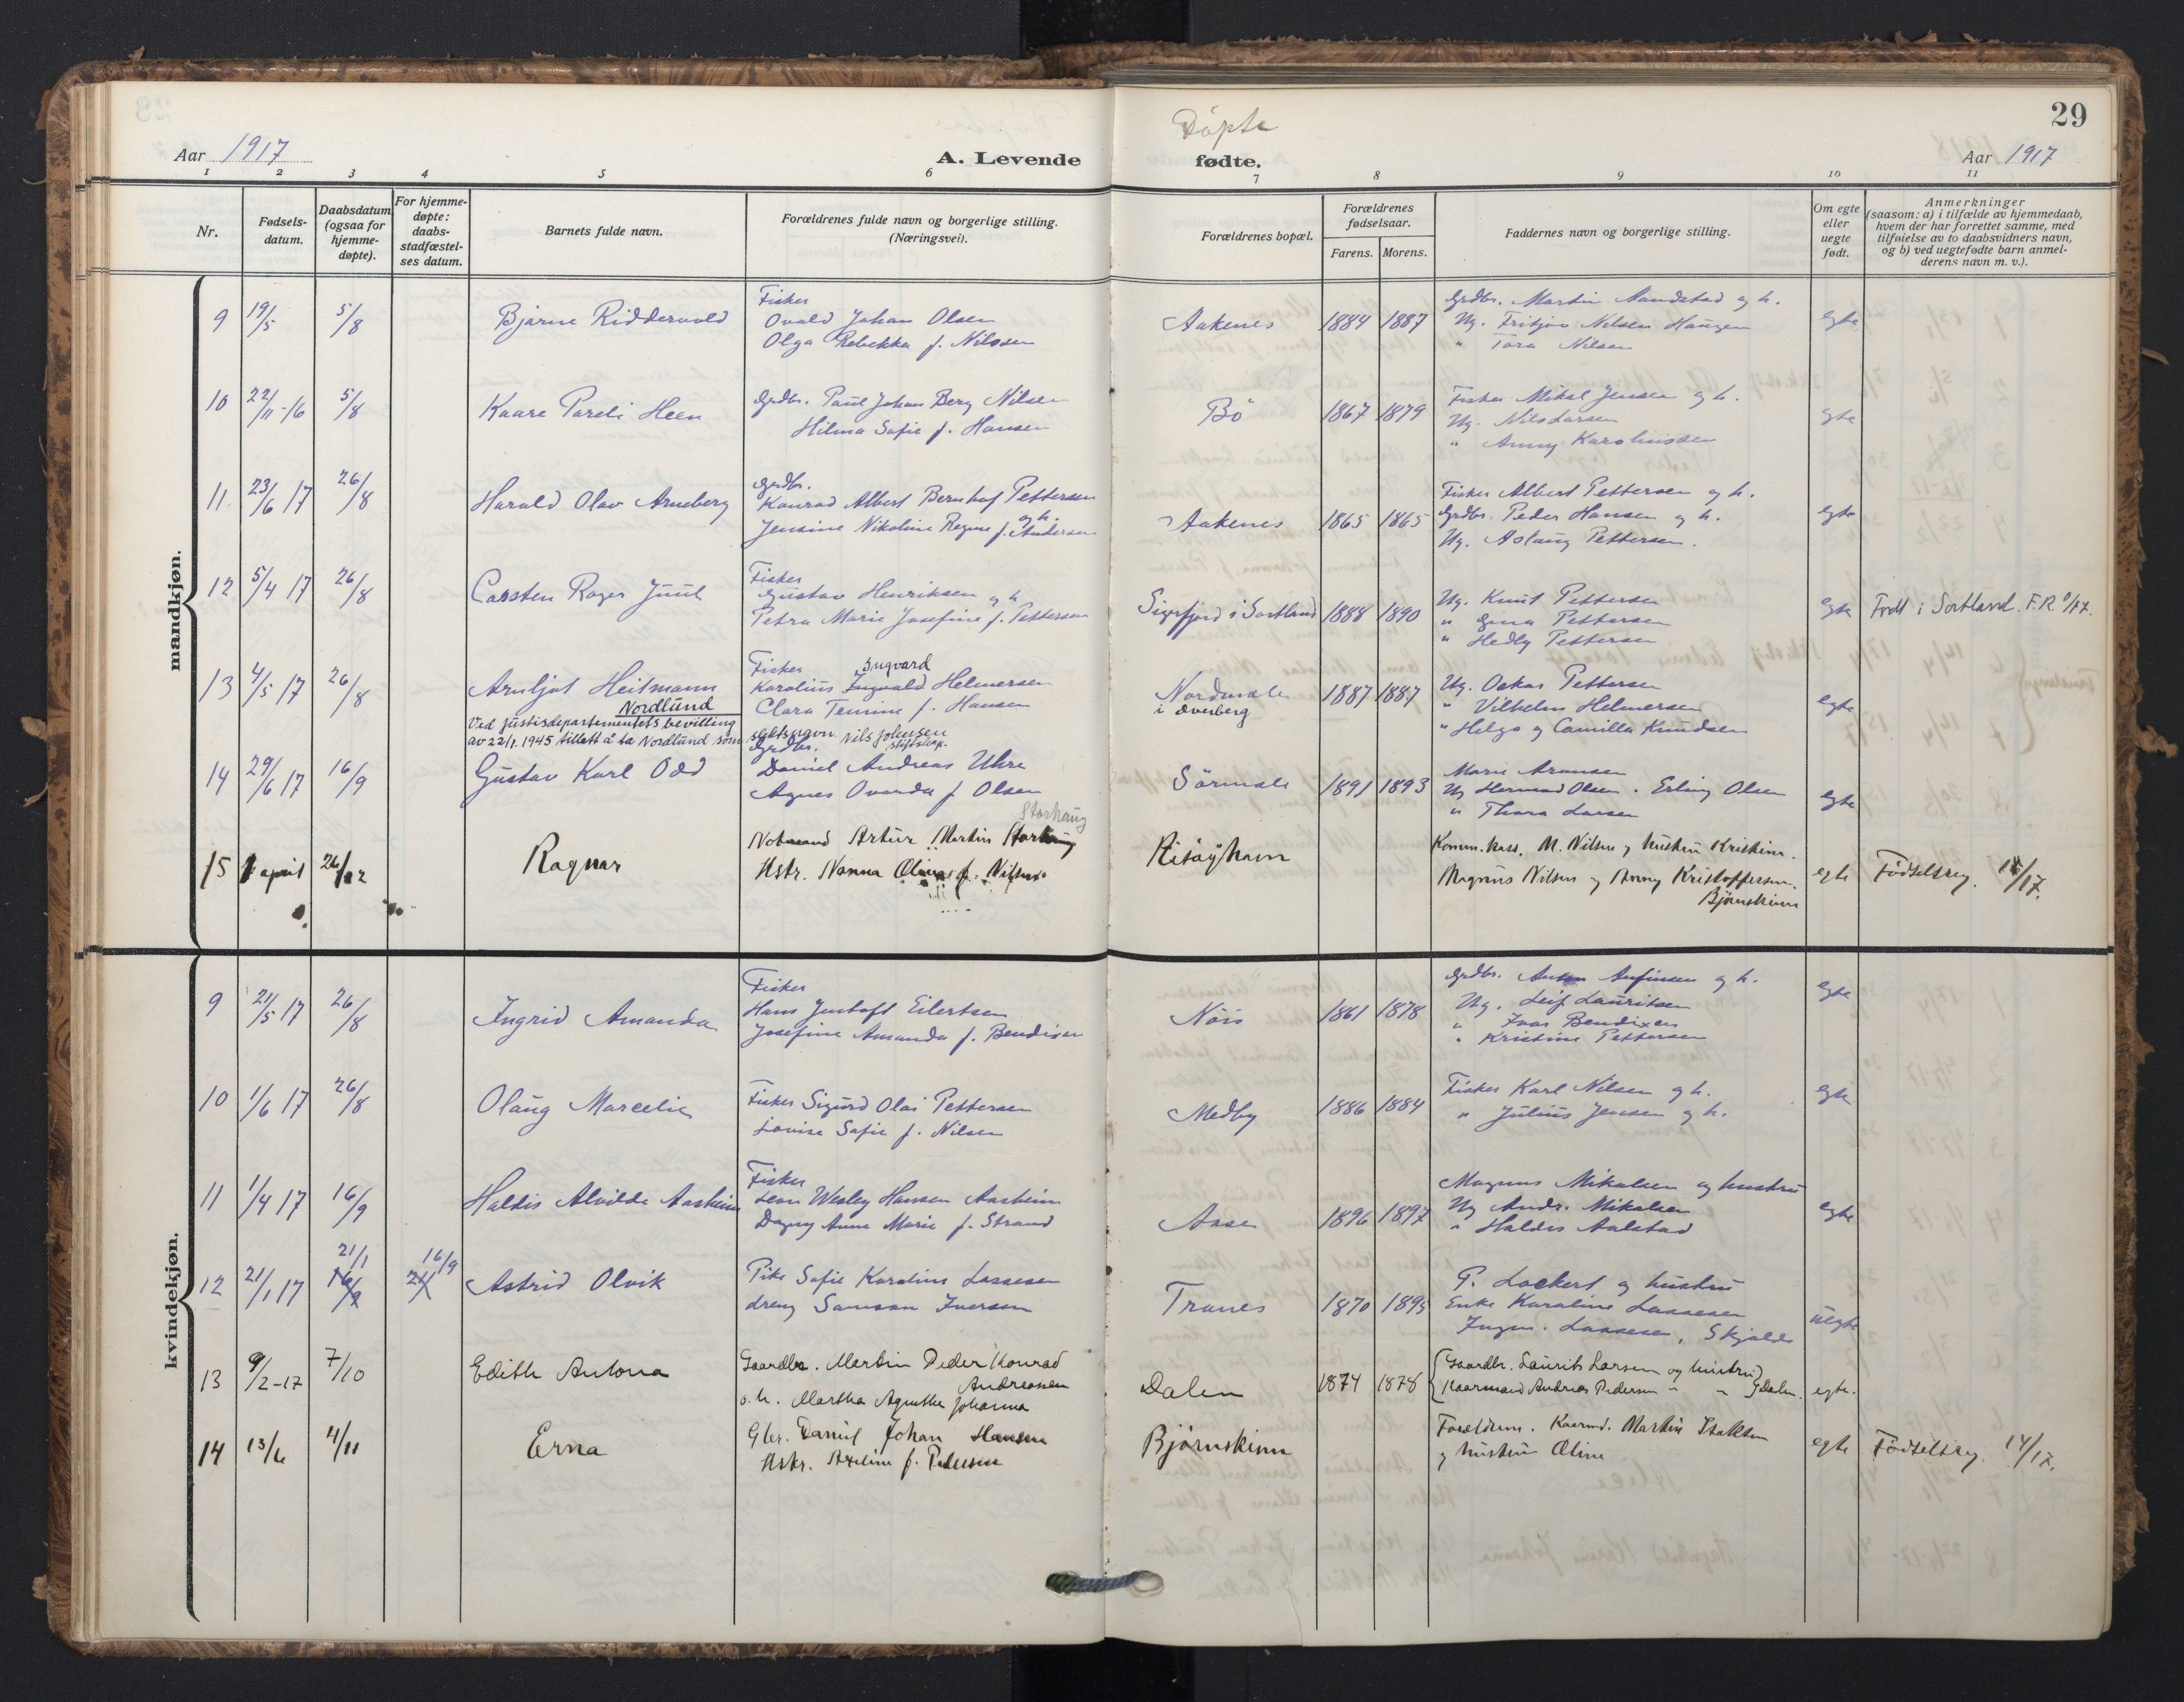 29
Døpte
Aar 1917
A. Levende fødte.
Aar 1917
1 2 3 4 5 6 7 8 9 10 11
Nr.
Fødsels-
datum.
Daabsdatum
(ogsaa for
hjemme-
døpte).
For hjemme-
døpte:
daabs-
stadfæstel-
ses datum.
Barnets fulde navn.
Forældrenes fulde navn og borgerlige stilling.
(Næringsvei).
Forældrenes bopæl.
Forældrenes
fødselsaar.
Farens. Morens.
Faddernes navn og borgerlige stilling.
Om egte
eller
uegte
født.
Anmerkninger
(saasom: a) i tilfælde av hjemmedaab,
hvem der har forrettet samme, med
tilføielse av to daabsvidners navn,
og b) ved uegtefødte barn anmel-
derens navn m. v.).
mandkjøn.
9 19/5 5/8 Bjarne Riddervold
Fisker
Ovald Johan Olsen
Olga Rebekka f. Nilssen
Aakenes 1884 1887
Grdbr. Martin Aandstad og h.
Ug. Fritjov Nilsen Haugen
" Tora Nilsen
egte
10 22/11-16 5/8 Kaare Pareli Heen
Grdbr. Paul Johan Berg Nilsen
Hilma Sofie f. Hansen
Bö 1867 1879
Fisker Mikal Jensen og h.
Ug. Nils Larsen
" Anny Karoliussen
egte
11 23/6 17 26/8 Harald Olav Arneberg
Grdbr.
Konrad Albert Bernhof Pettersen
og h.
Jensine Nikoline Regine f. Andersen
Aakenes 1865 1865
Fisker Albert Pettersen og h.
Grdbr. Peder Hansen og h.
Ug. Aslaug Pettersen.
egte
12 5/4 17 26/8 Carsten Roger Juul
Fisker
Gustav Henriksen og h
Petra Marie Josefine f. Pettersen
Sigerfjord i Sortland 1888 1890
Ug. Knut Pettersen
" Gina Pettersen
" Hedly Pettersen
egte Født i Sortland. F.R.
13 4/5 17 26/8 Arnljot Heitmann
Nordlund
Ved justisdepartementets bevilling
av 22/1.1945 tillatt å ta Nordlund som slektsnavn Nils Johnsen
stiftskap.
Fisker Ingvard
Karolius Ingvald Helmersen
Clara Temine f. Hansen
Nordmele
i Åverberg
1887 1887
Ug. Oskar Pettersen
" Vilhelm Helmersen
" Helga og Camilla Knudsen
egte
14 29/6 17 16/9 Gustav Karl Odd
Grdbr.
Daniel Andreas Uhre
Agnes Ovarda f Olsen
Sörmele 1891 1893
Marie Aronsen
Ug Hermod Olsen. Erling Olsen
" Thora Larsen
egte
15 1 april 26/12 Ragnar
Storhaug
Notmand Artur Martin Storhaug
Hstr. Nanna Oline f. Nilsen
Risöyhavn
Komm.kass. M. Nilsen og hustru Kristine.
Magnus Nilsen og Anny Kristoffersen.
Bjørnskinn
egte Fødselsreg. 11/17.
kvindekjøn.
9 21/5 17 26/8 Ingrid Amanda
Fisker
Hans Jentoft Eilertsen
Josefine Amanda f. Bendixen
Nöis 1861 1878
Grdbr. Anton Anfinsen og h.
Ug. Leif Lauritsen
" Ivar Bendixen
" Kristine Pettersen
egte
10 1/6 17 26/8 Olaug Marcelie
Fisker Sigurd Olai Pettersen
Lovise Sofie f. Nilsen
Medby 1886 1884
Fisker Karl Nilsen og h.
" Julius Jensen og h.
egte
11 1/4 17 16/9 Haldis Alvilde Aasheim
Fisker
Leon Wesley Hansen Aasheim
Dagny Anne Marie f. Strand
Aase 1896 1897
Magnus Mikalsen og hustru
Ug Andr. Mikalsen
" Haldis Aalstad
egte
12 21/1 17 21/1 16/9 16/9 21/1 Astrid Olvik
Pike Sofie Karoline Lassesen
dreng Samson Iversen
Tranes 1870 1895
P. Lockert og hustru
Enke Karoline Lassesen
Ingm. Lassesen, Skjolde
uegte
13 9/2-17 7/10 Edith Antona
Gaardbr. Martin Peder Konrad
Andreassen
o. h. Martha Agnethe Johanna
Dalen 1874 1878
Gaardbr. Laurits Larsen og hustru
Kaarmand Andreas Pedersen " " Dalen.
egte.
14 13/6 4/11 Erna
Gbr. Daniel Johan Hansen
Hstr. Axeline f. Pedersen
Bjørnskinn
Foreldrene. Kaarmd. Martin
og hustru Oline
egte Fødselsreg. 14/17.